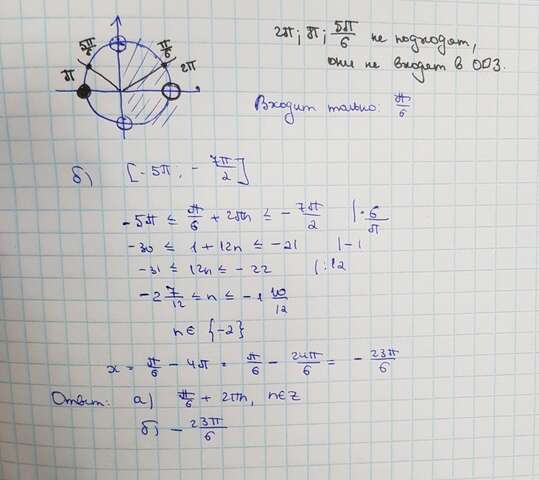 5π/6
π/6
π
2π
2π; π; 5π/6 не подходят,
они не входят в ОДЗ.
Входит только: π/6
б) [-5π; -7π/2]
-5π ≤ π/6 + 2πn ≤ -7π/2 |· 6/π
-30 ≤ 1 + 12n ≤ -21 |-1
-31 ≤ 12n ≤ -22 |:12
-2 7/12 ≤ n ≤ -1 10/12
n ∈ {-2}
x = π/6 - 4π = π/6 - 24π/6 = -23π/6
Ответ: а) π/6 + 2πn, n∈Z
б) -23π/6